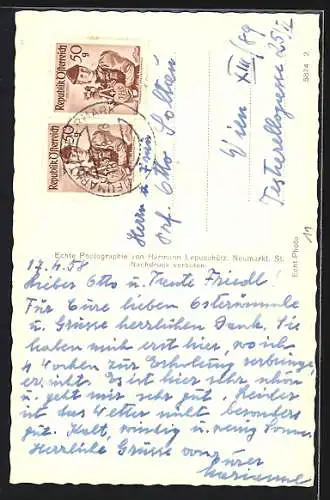 Republik Österreich
50g
Republik Österreich
50g
Herrn u. Frau
Otto Soltau
Wien XIII/89
25/II
5824 2
Echte Photographie von Hermann Lepuschütz, Neumarkt, St.
Nachdruck verboten
Echt Photo
17.4.58
Lieber Otto u. Friedl!
Für Eure lieben Ostergrüsse
u. Grüsse herzlichen Dank. Sie
haben mich erst hier, wo ich
4 Wochen zur Erholung verbringe,
erreicht. Es ist hier sehr schön
u. geht mir sehr gut. Leider
ist das Wetter nicht besonders
gut. Kalt, windig u. wenig Sonne.
Herzliche Grüsse von
Eurer